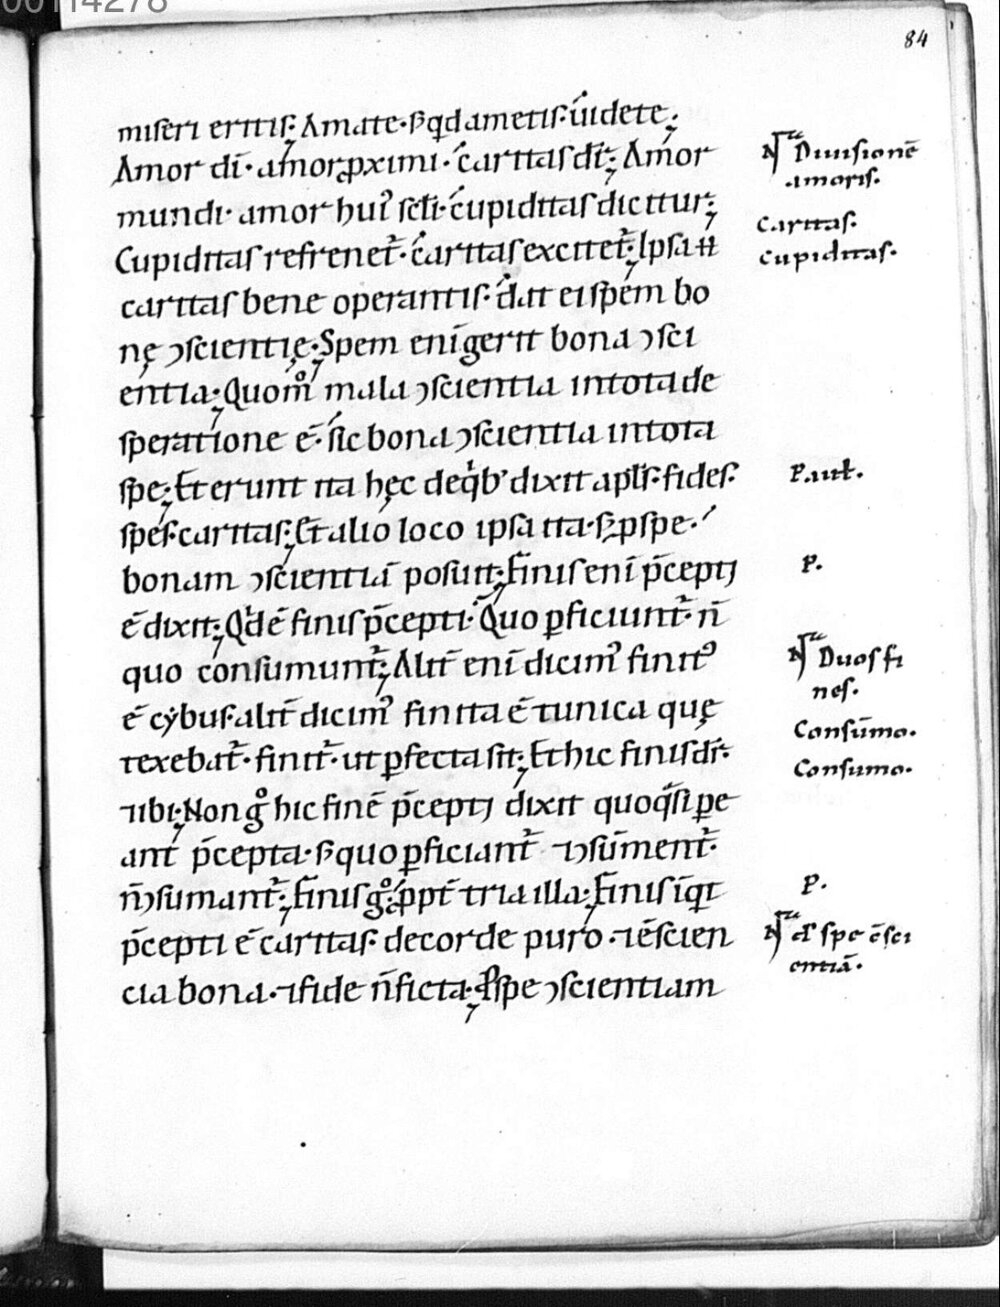 00114278
84
miseri eritis; Amate· sꝫ qd ametis· uidete;
Amor di̅· amor ꝓximi· caritas dr̅; Amor
mundi· amor huiꝰ sc̅li· cupiditas dicitur;
Cupiditas refrenet᷑· caritas excitet᷑; Ipsa u̅
caritas bene operantis· dat ei spem bo
nę ↄscientię; Spem eni̅ gerit bona ↄsci
entia; Quom̊ mala ↄscientia in tota de
speratione e̅· sic bona ↄscientia in tota
spe; Et erunt ita hęc de qͥbꝰ dixit apl̅s· fides·
spes· caritas; Et alio loco ipsa tria· sꝫ p̱ spe·
bonam ↄscientia̅ posuit; Finis eni̅ p̅cepti
e̅ dixit; Qͥd e̅ finis p̅cepti· Quo ꝑficiunt᷑· n̅
quo consumunt᷑; Alit̅ eni̅ dicimꝰ finitꝰ
e̅ cybus· alit̅ dicimꝰ finita e̅ tunica quę
texebat᷑· finit᷑· ut ꝑfecta sit; Et hic finis dr̅·
⁊ ibi; Non gͦ hic fine̅ p̅cepti dixit quo qͣsi ꝑe
ant p̅cepta· sꝫ quo ꝑficiant᷑ ⁊ ↄsu̅ment᷑·
n̅ ↄsumant᷑; Finis gͦ· ꝓpt̅ tria illa; Finis i̅qt
p̅cepti e̅ caritas· de corde puro· ⁊ e̅ scien
cia bona· ⁊ fide n̅ ficta; P̱ spe ↄscientiam
Nͭᵃ Diuisione̅
amoris.
Caritas.
Cupiditas.
Paul.
P.
Nͭᵃ Duos fi
nes.
Consu̅mo.
Consumo.
P.
Nͭᵃ spe e̅sci
entia̅.